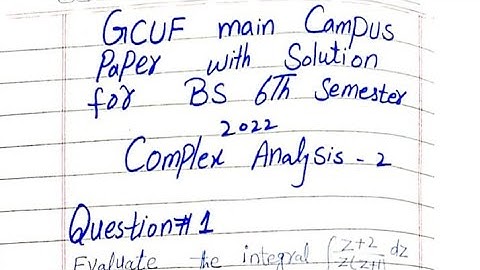 GCUF main Campus
Paper with Solution
for BS 6Th Semester
2022
Complex Analysis - 2
Question#1
Evaluate the integral ∫ z+2 / z(z+1) dz